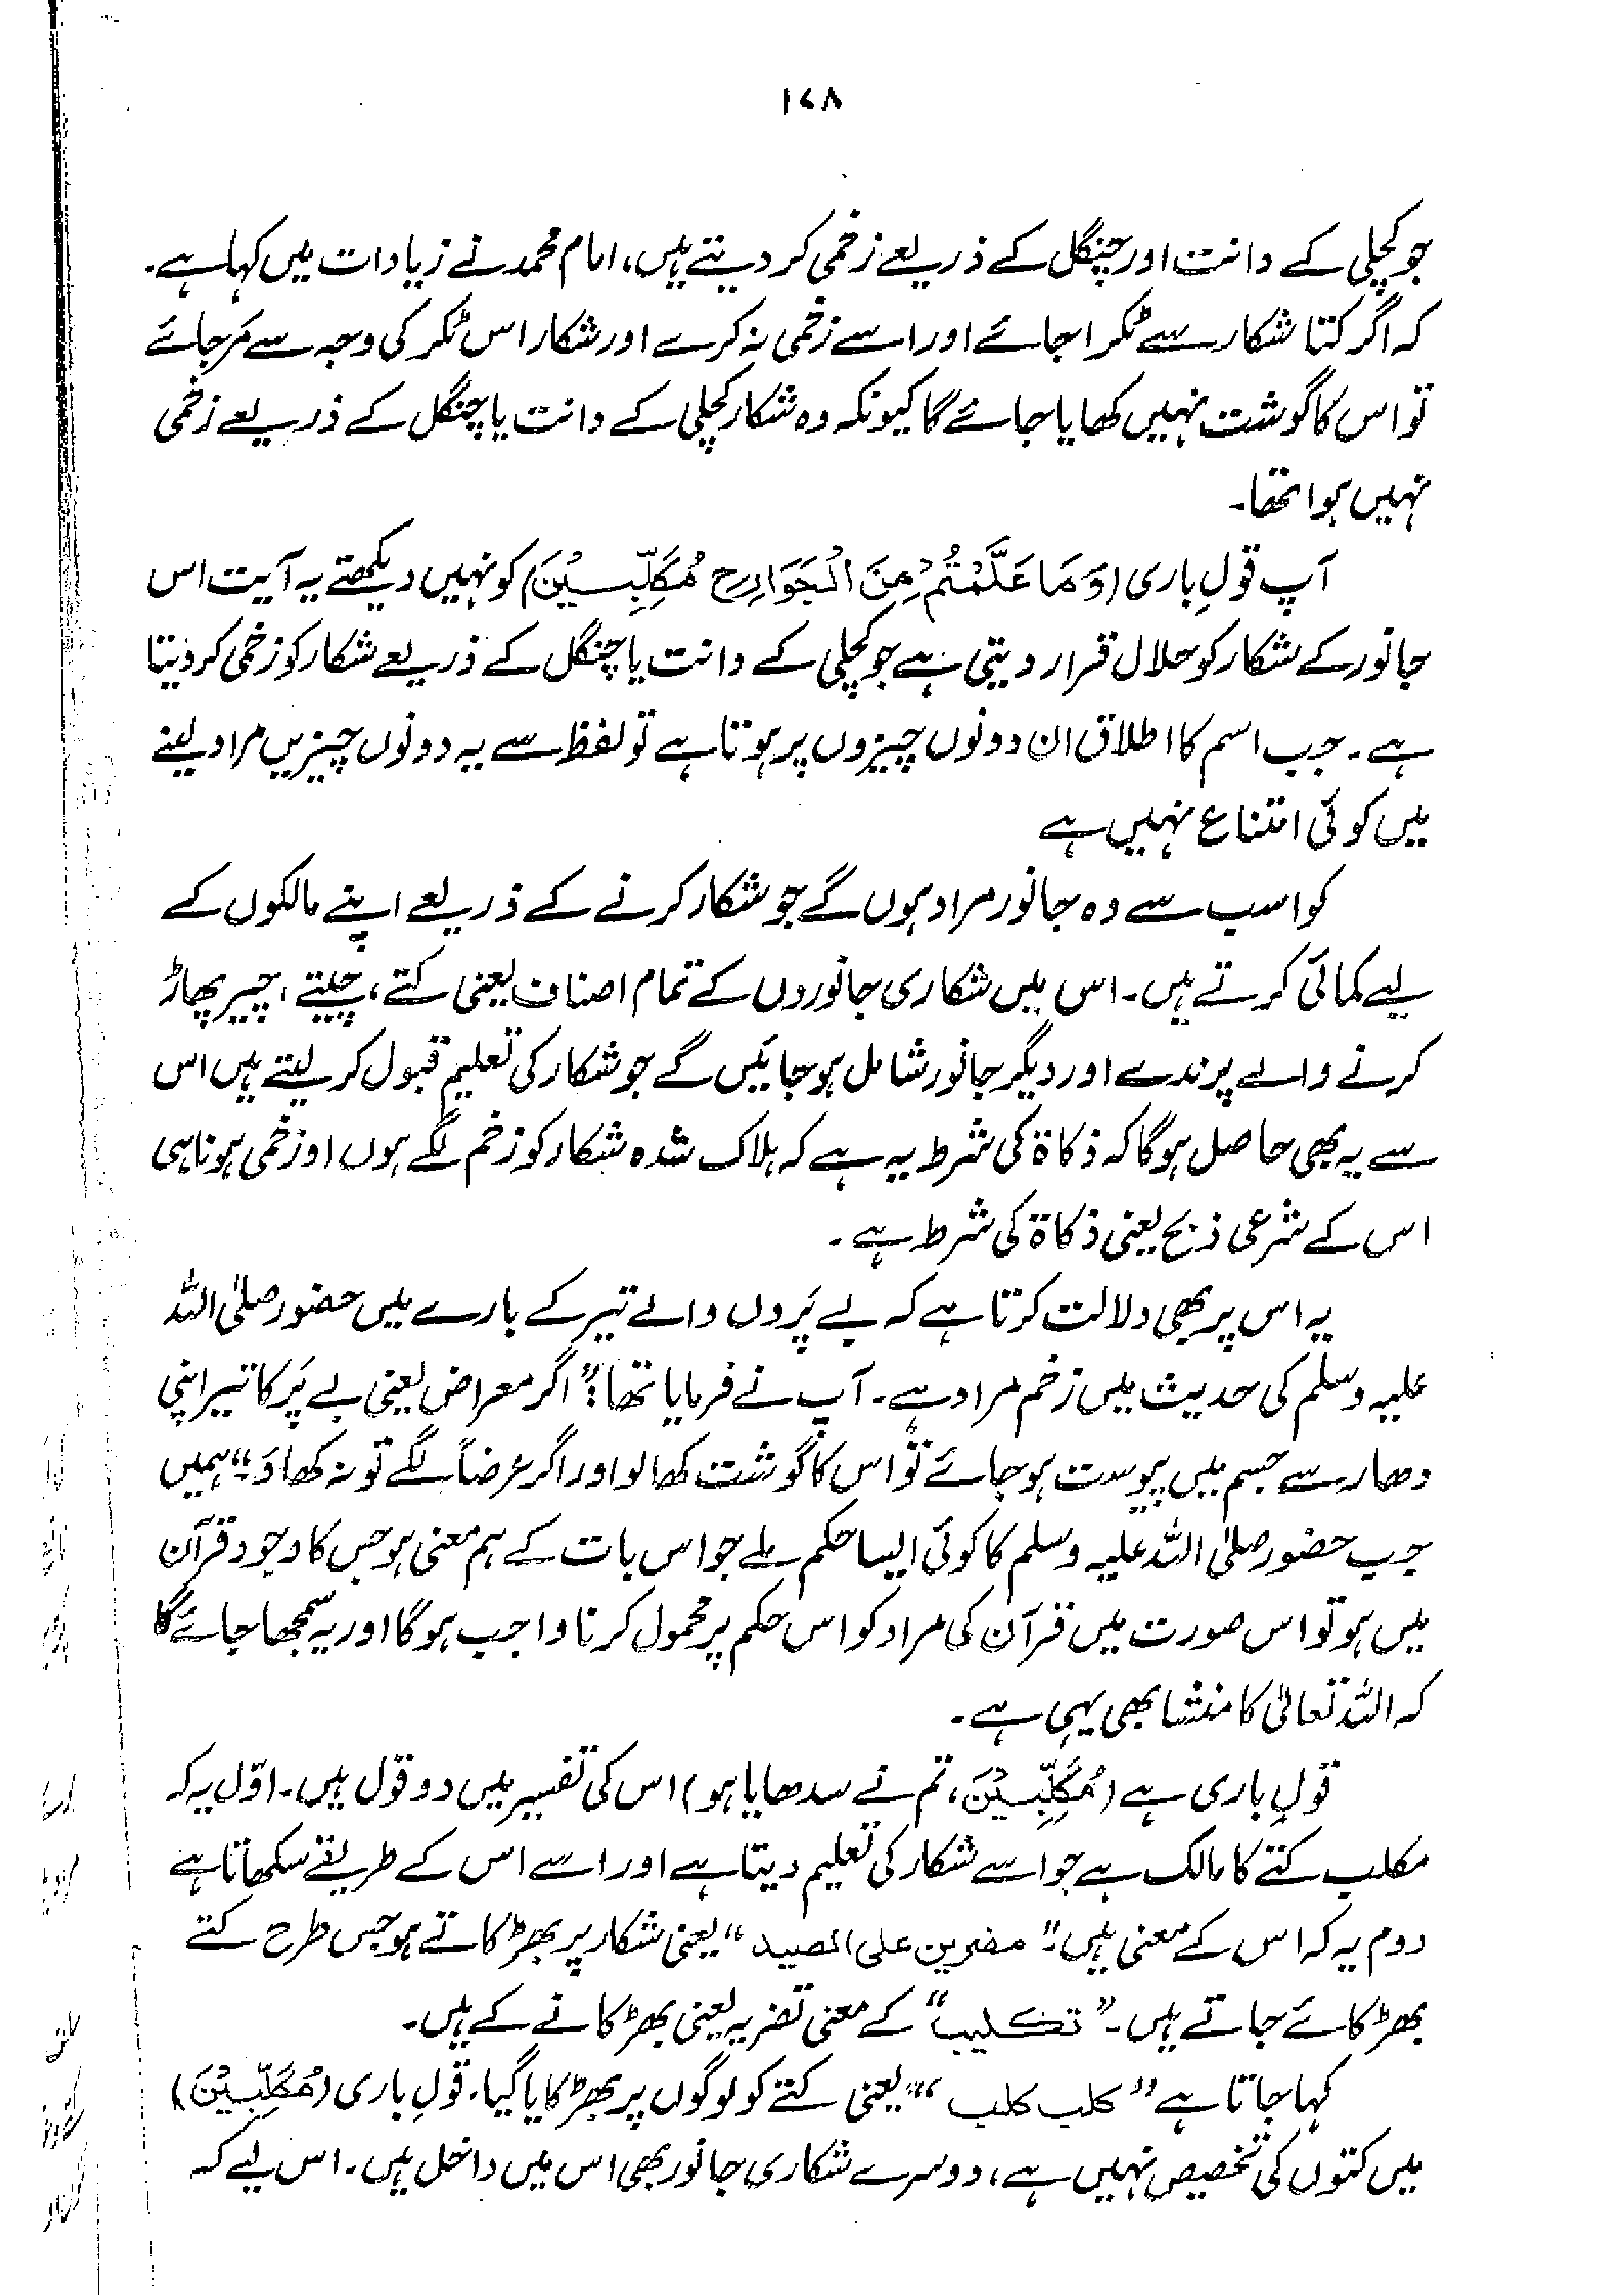 ۱۷۸
جو کچلی کے دانت اور چنگل کے ذریعے زخمی کر دیتے ہیں، امام محمد نے زیادات میں کہا ہے۔
کہ اگر کتا شکار سے ٹکرا جائے اور اسے زخمی نہ کرے اور شکار اس ٹکر کی وجہ سے مَر جائے
تو اس کا گوشت نہیں کھایا جائے گا کیونکہ وہ شکار کچلی کے دانت یا چنگل کے ذریعے زخمی
نہیں ہوا تھا۔
آپ قولِ باری (وَمَا عَلَّمْتُمْ مِنَ الْجَوَارِحِ مُكَلِّبِيْنَ) کو نہیں دیکھتے یہ آیت اس
جانور کے شکار کو حلال قرار دیتی ہے جو کچلی کے دانت یا چنگل کے ذریعے شکار کو زخمی کر دیتا
ہے۔ جب اسم کا اطلاق ان دونوں چیزوں پر ہوتا ہے تو لفظ سے یہ دونوں چیزیں مراد لینے
میں کوئی امتناع نہیں ہے
کواسب سے وہ جانور مراد ہوں گے جو شکار کرنے کے ذریعے اپنے مالکوں کے
لیے کمائی کرتے ہیں۔ اس میں شکاری جانوردں کے تمام اصناف یعنی کتے، چیتے، چیر پھاڑ
کرنے والے پرندے اور دیگر جانور شامل ہو جائیں گے جو شکار کی تعلیم قبول کر لیتے ہیں اس
سے یہ بھی حاصل ہوگا کہ ذکاۃ کی شرط یہ ہے کہ ہلاک شدہ شکار کو زخم لگے ہوں او زخمی ہونا ہی
اس کے شرعی ذبح یعنی ذکاۃ کی شرط ہے۔
یہ اس پر بھی دلالت کرتا ہے کہ بے پَروں والے تیر کے بارے میں حضور صلی اللہ
علیہ وسلم کی حدیث میں زخم مراد ہے۔ آپ نے فرمایا تھا: "اگر معراض یعنی بے پَر کا تیر اپنی
دھار سے جسم میں پیوست ہو جائے تو اس کا گوشت کھالو اور اگر عرضاً لگے تو نہ کھاؤ۔" ہمیں
جب حضور صلی اللہ علیہ وسلم کا کوئی ایسا حکم ملے جو اس بات کے ہم معنی ہو جس کا وجود قرآن
میں ہو تو اس صورت میں قرآن کی مراد کو اس حکم پر محمول کرنا واجب ہوگا اور یہ سمجھا جائے گا
کہ اللہ تعالیٰ کا منشا بھی یہی ہے۔
قولِ باری ہے (مُكَلِّبِيْنَ، تم نے سدھایا ہو) اس کی تفسیر میں دو قول ہیں۔ اوّل یہ کہ
مکلب کتے کا مالک ہے جو اسے شکار کی تعلیم دیتا ہے اور اسے اس کے طریقے سکھاتا ہے
دوم یہ کہ اس کے معنی ہیں۔" مضرین علی الصید" یعنی شکار پر بھڑکاتے ہو جس طرح کتے
بھڑکائے جاتے ہیں۔ "تکلیب" کے معنی تضریہ یعنی بھڑکانے کے ہیں۔
کہا جاتا ہے "کلب کلب" یعنی کتے کو لوگوں پر بھڑکایا گیا۔ قولِ باری (مُكَلِّبِيْنَ)
میں کتوں کی تخصیص نہیں ہے، دوسرے شکاری جانور بھی اس میں داخل ہیں۔ اس لیے کہ